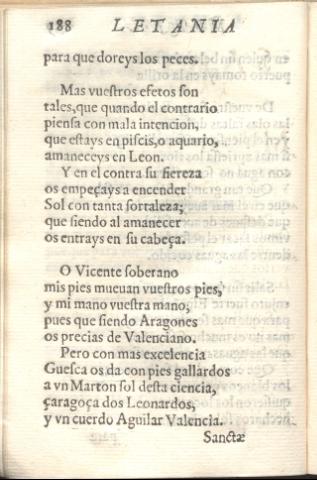 188 LETANIA
para que doreys los peces.
Mas vuestros efetos son
tales, que quando el contrario
piensa con mala intencion,
que estays en piscis, o aquario,
amaneceys en Leon.
Y en el contra su fiereza
os empeçays a encender
Sol con tanta fortaleza;
que siendo al amanecer
os entrays en su cabeça.
O Vicente soberano
mis pies mueuan vuestros pies,
y mi mano vuestra mano,
pues que siendo Aragones
os precias de Valenciano.
Pero con mas excelencia
Guesca os da con pies gallardos
a vn Marton sol desta ciencia,
çaragoça dos Leonardos,
y vn cuerdo Aguilar Valencia.
Sanctæ